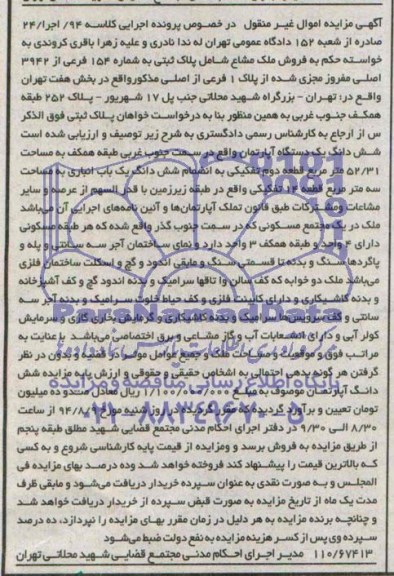 آگهی مزایده اموال غیر منقول در خصوص پرونده اجرایی کلاسه ۹۴/ اجرا/۲۴
صادره از شعبه ۱۵۲ دادگاه عمومی تهران له ندا نادری و علیه زهرا باقری کروندی به
خواسته حکم به فروش ملک مشاع شامل پلاک ثبتی به شماره ۱۵۴ فرعی از ۳۹۴۲
اصلی مفروز مجزی شده از پلاک ۱ فرعی از اصلی مذکور واقع در بخش هفت تهران
واقع در: تهران - بزرگراه شهید محلاتی جنب پل ۱۷ شهریور - پلاک ۲۵۲ طبقه
همکف جنوب غربی به همین منظور بنا به درخواست خواهان پلاک ثبتی فوق الذکر
س از ارجاع به کارشناس رسمی دادگستری به شرح زیر توصیف و ارزیابی شده است
شش دانگ یک دستگاه آپارتمان واقع در سمت جنوب غربی طبقه همکف به مساحت
۵۲/۳۱ متر مربع قطعه دوم تفکیکی به انضمام شش دانگ یک باب انباری به مساحت
سه متر مربع قطعه ۱۴ تفکیکی واقع در طبقه زیرزمین با قدر السهم از عرصه و سایر
مشاعات و مشترکات طبق قانون تملک آپارتمان‌ها و آئین نامه‌های اجرایی آن می‌باشد
ملک در یک مجتمع مسکونی که در سمت جنوب گذر واقع شده که هر طبقه مسکونی
دارای ۴ واحد و طبقه همکف ۳ واحد دارد و نمای ساختمان آجر سه سانتی و پله و
پاگردها سنگ و بدنه تا قسمتی سنگ و مابقی اندود و گچ و اسکلت ساختمان فلزی
می‌باشد ملک دو خوابه که کف سالن وا تاقها سرامیک و بدنه اندود گچ و کف آشپزخانه
و بدنه کاشیکاری و دارای کابینت فلزی و کف حیاط خلوت سرامیک و بدنه آجر سه
سانتی و کف سرویس‌ها سرامیک و بدنه کاشیکاری و گرمایش بخاری گازی و سرمایش
کولر آبی و دارای انشعابات آب و گاز مشاعی و برق اختصاصی می‌باشد با عنایت به
مراتب فوق و موقعیت و مساحت ملک و جمیع عوامل موثر در قضیه و بدون در نظر
گرفتن هر گونه بدهی احتمالی به اشخاص حقیقی و حقوقی و ارزش پایه مزایده شش
دانگ آپارتمان موصوف به مبلغ ۱/۱۰۰/۰۰۰/۰۰۰ ریال معادل صدو ده میلیون
تومان تعیین و برآورد گردید که مقرر گردیده در روز شنبه مورخ ساعت
۸/۳۰ الی ۹/۳۰ در دفتر اجرای احکام مدنی مجتمع قضایی شهید مطلق طبقه پنجم
از طریق مزایده به فروش برسد و مزایده از قیمت پایه کارشناسی شروع و به کسی
که بالاترین قیمت را پیشنهاد کند فروخته خواهد شد وده درصد بهای مزایده فی
المجلس و به صورت نقدی به عنوان سپرده خریدار دریافت می‌شود و مابقی ظرف
مدت یک ماه از تاریخ مزایده به صورت قبض سپرده از خریدار دریافت خواهد شد
و چنانچه برنده مزایده به هر دلیل در زمان مقرر بهای مزایده را نپردازد، ده درصد
سپرده وی پس از کسر هزینه مزایده به نفع دولت ضبط می‌شود
۱۱۰/۶۷۴۱۳ مدیر اجرای احکام مدنی مجتمع قضایی شهید محلاتی تهران
پایگاه اطلاع رسانی مناقصه و مزایده